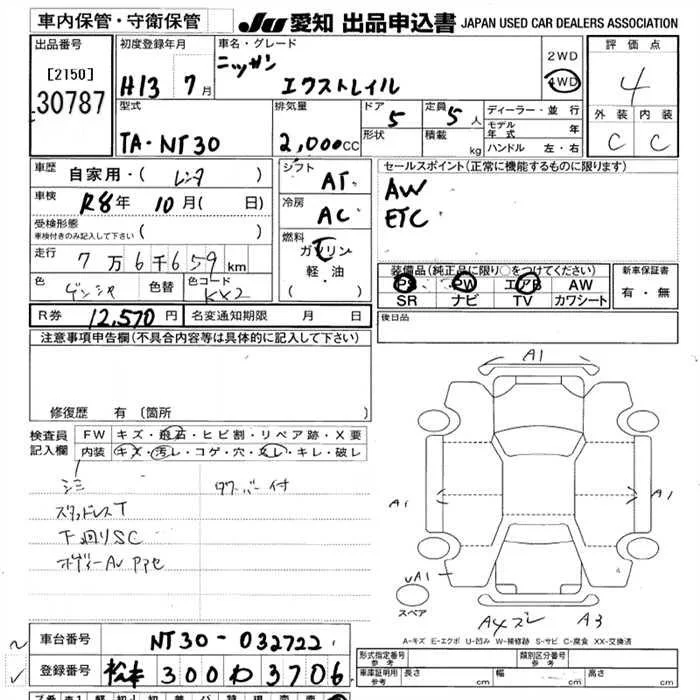 車内保管・守衛保管
JU 愛知 出品申込書 JAPAN USED CAR DEALERS ASSOCIATION
出品番号
[2150]
30787
初度登録年月
H13 7月
車名・グレード
ニッサン
エクストレイル
2WD
4WD
評価点
4
外装 内装
C C
型式
TA-NT30
排気量
2,000cc
ドア
5
形状
定員
5人
積載
kg
ディーラー・並行
モデル年式 年
ハンドル 左・右
車歴
自家用・( レンタ )
車検
R8年 10月( 日)
受検形態
車検付きのみ記入して下さい ( )
走行
7万6千659km
色
色替
色コード
KX2
シフト
AT
冷房
AC
燃料
ガソリン
軽・油
( )
セールスポイント(正常に機能するものに限ります)
AW
ETC
装備品(純正品に限り○をつけてください)
PS PW エアB AW
SR ナビ TV カワシート
新車保証書
有・無
R券 12,570円
名変通知期限 月 日
後日品
注意事項申告欄(不具合内容等は具体的に記入して下さい)
修復歴 有(箇所
検査員記入欄
FW キズ・飛石・ヒビ割・リペア跡・X要
内装 キズ・汚レ・コゲ・穴・スレ・キレ・破レ
スタッドレスT
下回りSC
タワーバー付
A1
A1
A1
A1
スペア
A3
A-キズ E-エクボ U-凹み W-補修跡 S-サビ C-腐食 XX-交換済
車台番号 NT30-032722
登録番号 松本 300 わ 3706
形式指定番号 参考
類別区分番号 参考
車庫証明用 参考 長さ cm 幅 cm 高さ cm